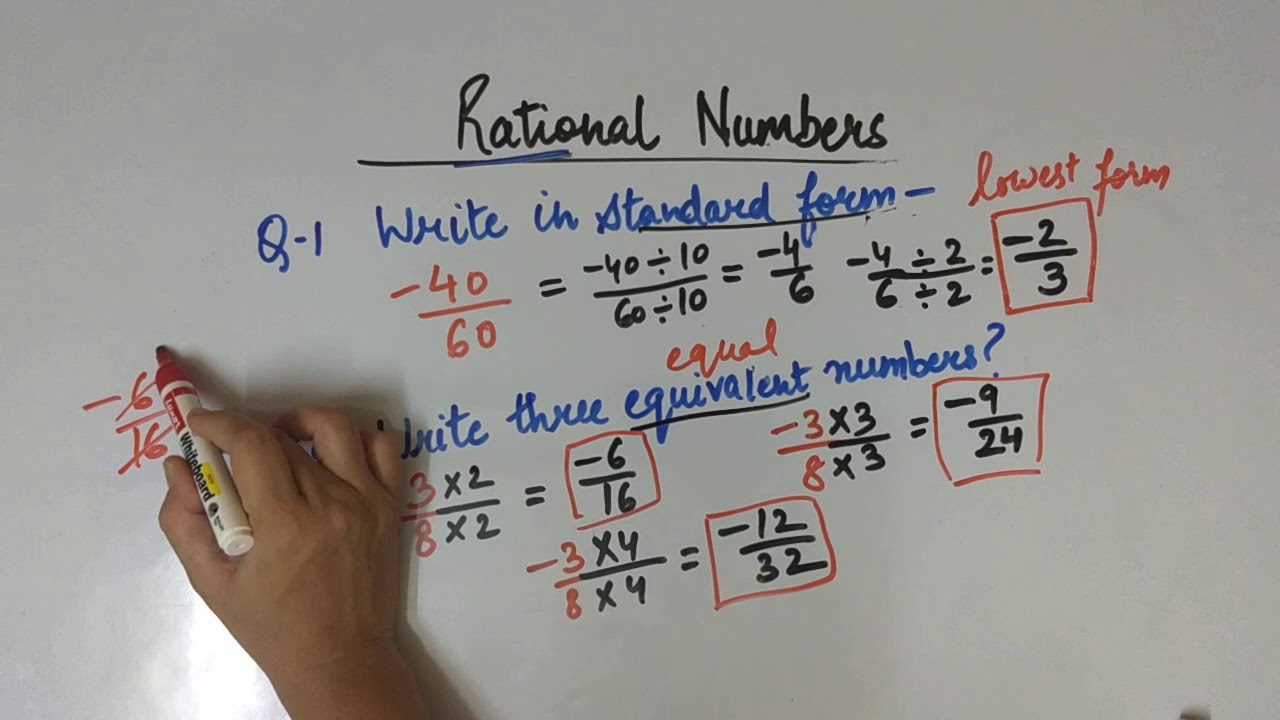 Rational Numbers
Q-1 Write in standard form -
lowest form
-40/60 = -40÷10/60÷10 = -4/6 -4÷2/6÷2 = -2/3
equal
Write three equivalent numbers?
-6/16
3×2/8×2 = -6/16
-3×3/8×3 = -9/24
-3×4/8×4 = -12/32
Whiteboard